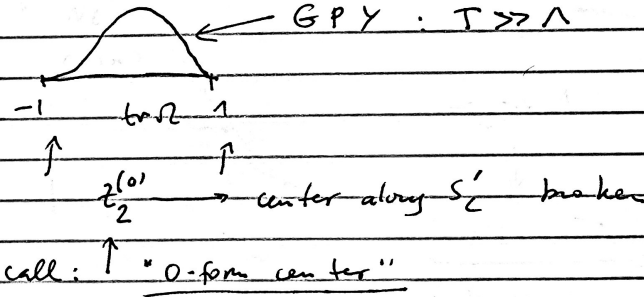 GPY : T >> Λ
-1 trΩ 1
Z₂⁽⁰⁾ → center along S'_L broken
call: ↑ "0-form center"